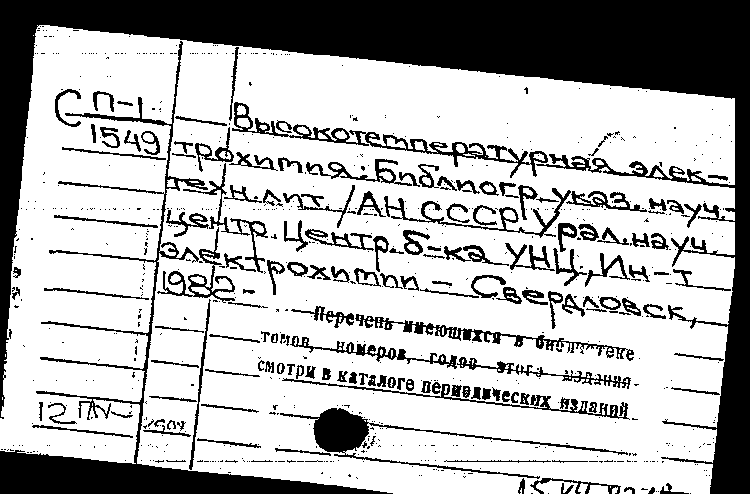 С П-1
1549
Высокотемпературная элек-
трохимия: Библиогр. указ. науч.-
техн. лит. / АН СССР. Урал. науч.
центр. Центр. б-ка УНЦ, Ин-т
электрохимии – Свердловск,
1982 -
Перечень имеющихся в библиотеке
томов, номеров, годов этого издания
смотри в каталоге периодических изданий
12